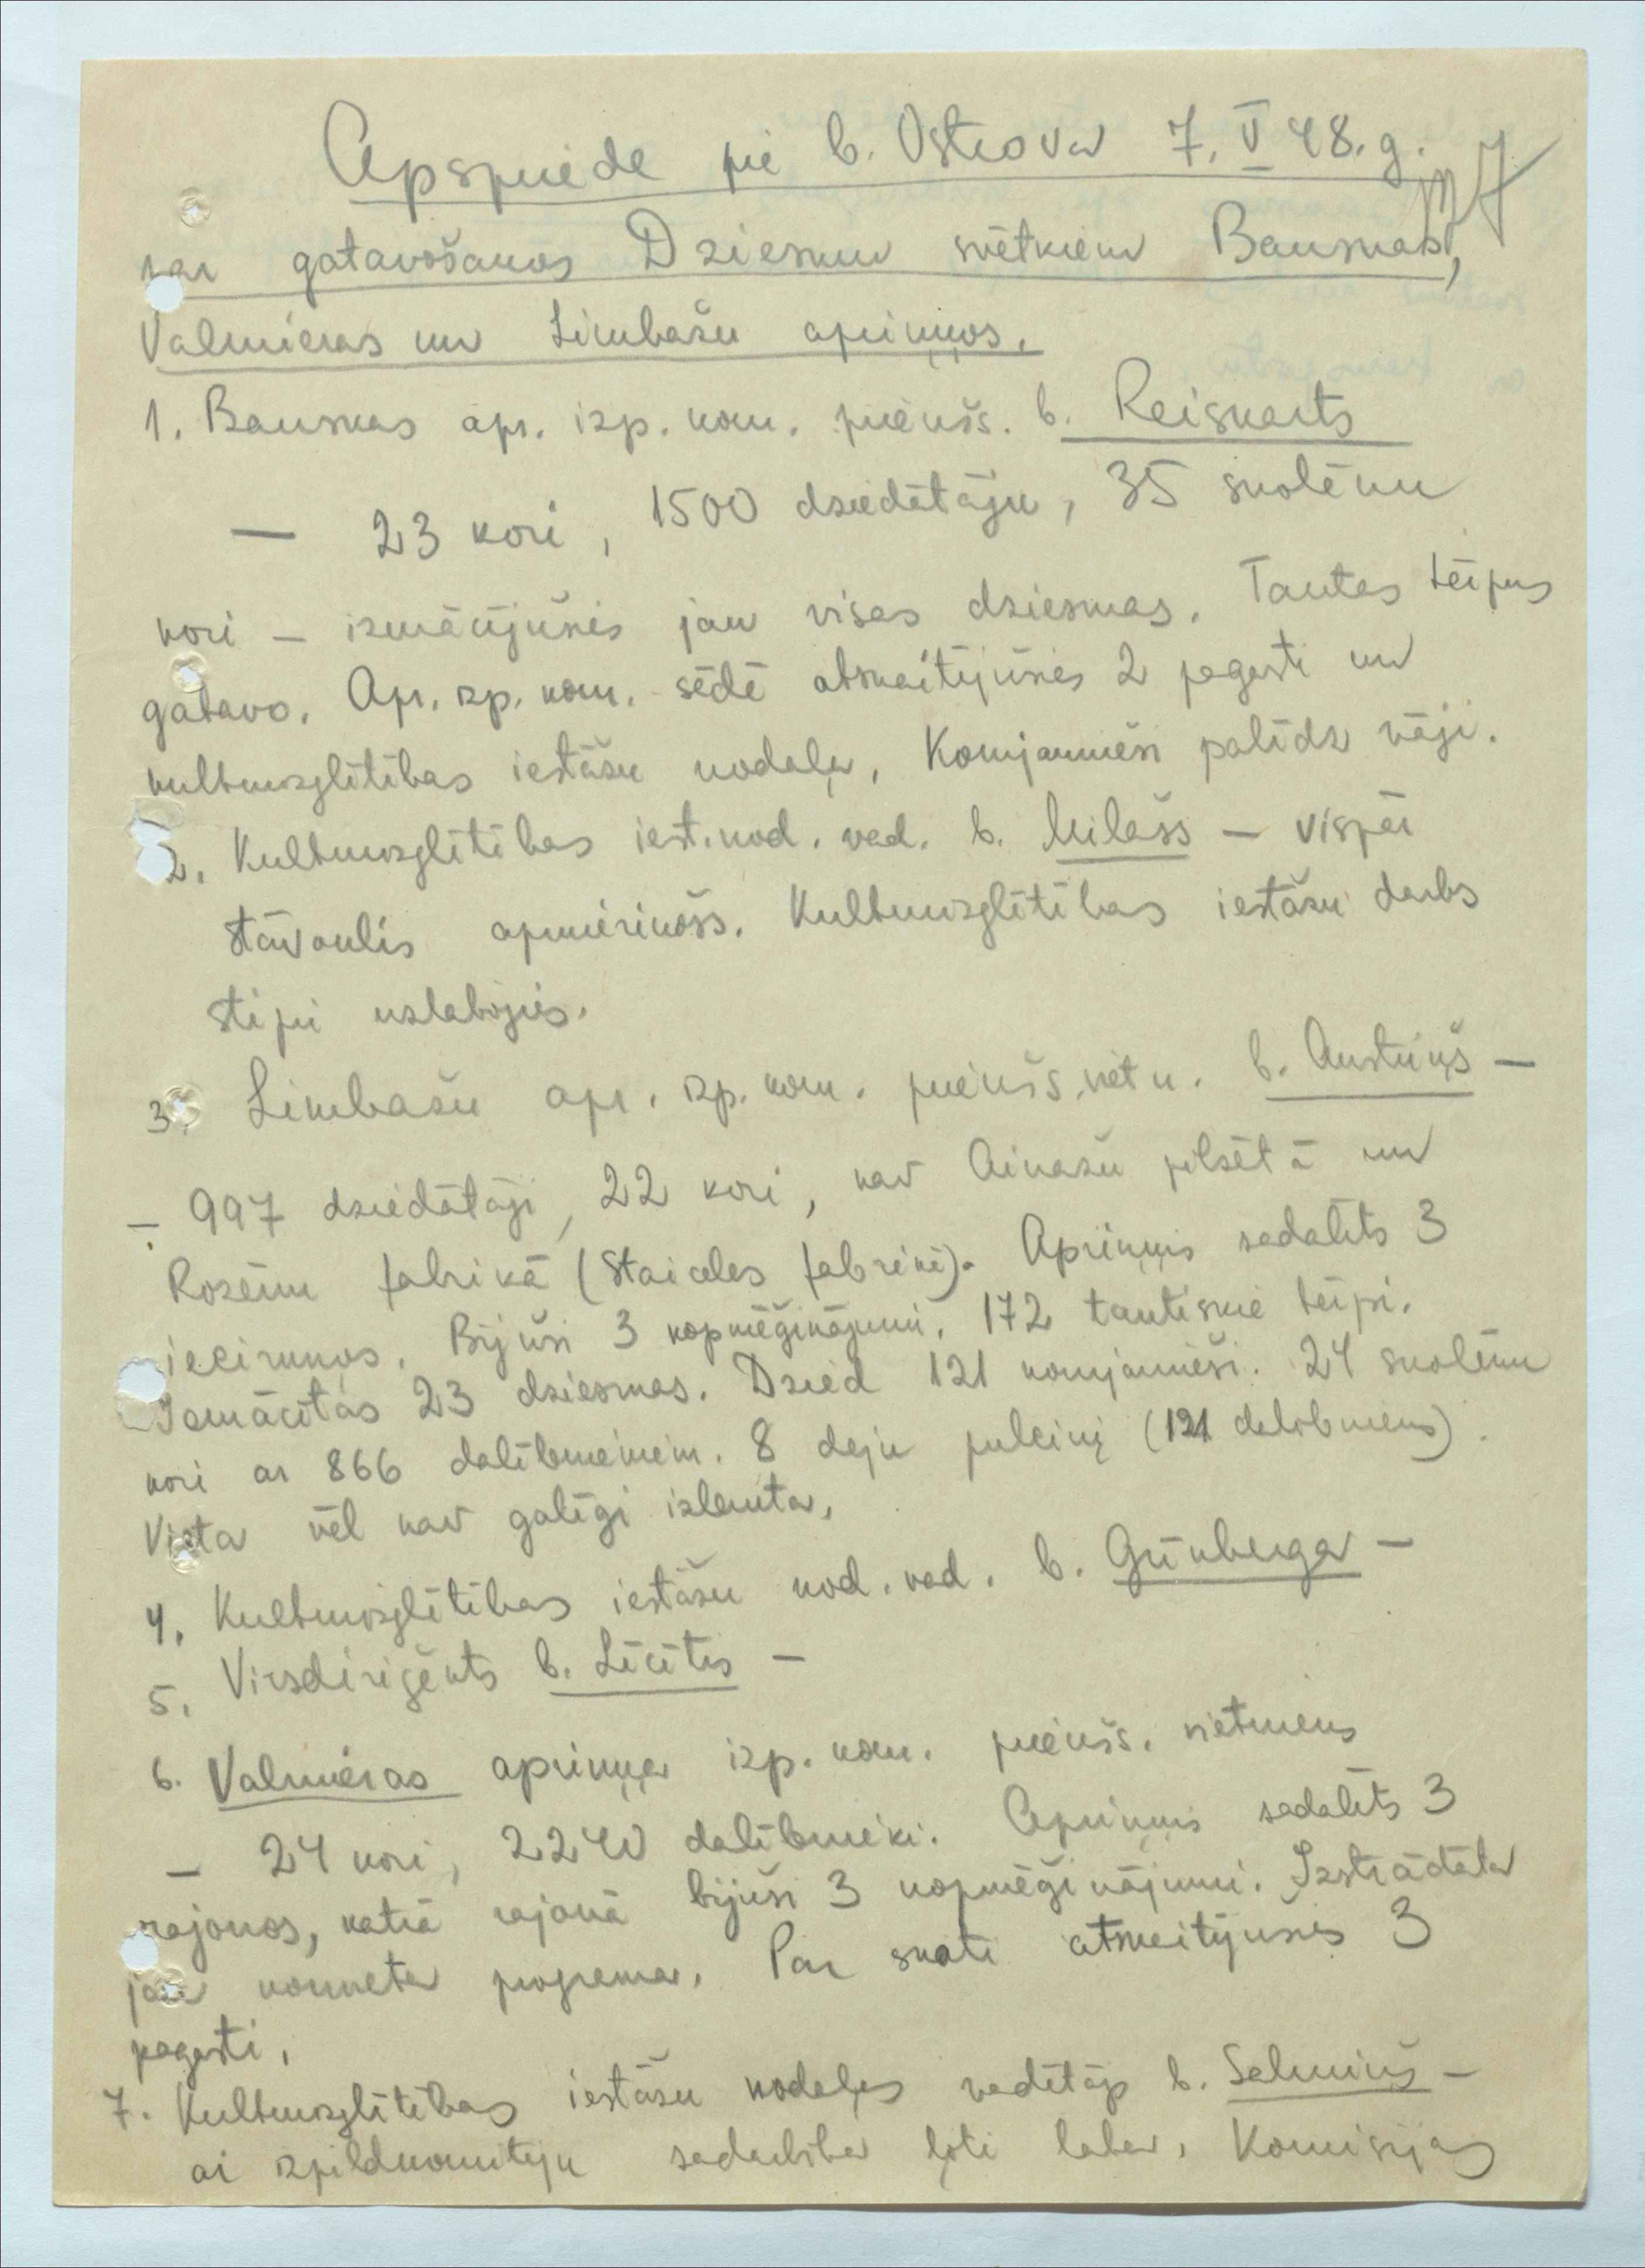 Apspriede pie b. Ostrova 7. V 48. g.
par gatavošanos Dziesmu svētkiem Bauskas,
Valmieras un Limbažu apriņķos.
1. Bauskas apr. izp. kom. priekšs. b. Reiskarts
— 23 kori, 1500 dziedātāju, 35 skolēnu
kori — izmācījušies jau visas dziesmas. Tautas tērpus
gatavo. Apr. izp. kom. sēdē atskaitījušies 2 pagasti un
kulturizglītības iestāžu nodaļa. Komjaunieši palīdz vāji.
2. Kulturizglītības iest. nod. vad. b. Milašs — vispār
stāvoklis apmierinošs. Kulturizglītības iestāžu darbs
stipri uzlabojies.
3. Limbažu apr. izp. kom. priekšs. vietn. b. Austriņš —
— 997 dziedātāji, 22 kori, nav Ainažu pilsētā un
Rozēnu fabrikā (Staiceles fabrikā). Apriņķis sadalīts 3
iecirkņos. Bijuši 3 kopmēģinājumi. 172 tautiskie tērpi.
Iemācītas 23 dziesmas. Dzied 121 komjaunieši. 24 skolēnu
kori ar 866 dalībniekiem. 8 deju pulciņi (121 dalībnieks).
Vieta vēl nav galīgi izlemta.
4. Kulturizglītības iestāžu nod. vad. b. Grīnberga —
5. Virsdiriģents b. Līcītis —
6. Valmieras apriņķa izp. kom. priekšs. vietnieks
— 24 kori, 2240 dalībnieki. Apriņķis sadalīts 3
rajonos, katrā rajonā bijuši 3 kopmēģinājumi. Izstrādāta
jau konkrēta programa. Par skati atskaitījušies 3
pagasti.
7. Kulturizglītības iestāžu nodaļas vadītājs b. Salmiņš —
ar izpildkomiteju sadarbība ļoti laba. Komisijas